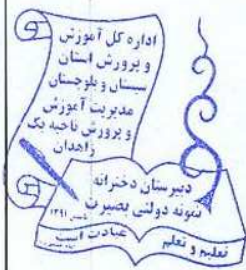 اداره کل آموزش
و پرورش استان
سیستان و بلوچستان
مدیریت آموزش
و پرورش ناحیه یک
زاهدان
دبیرستان دخترانه
نمونه دولتی بصیرت
تاسیس ۱۳۹۱
تعلیم و تعلم عبادت است